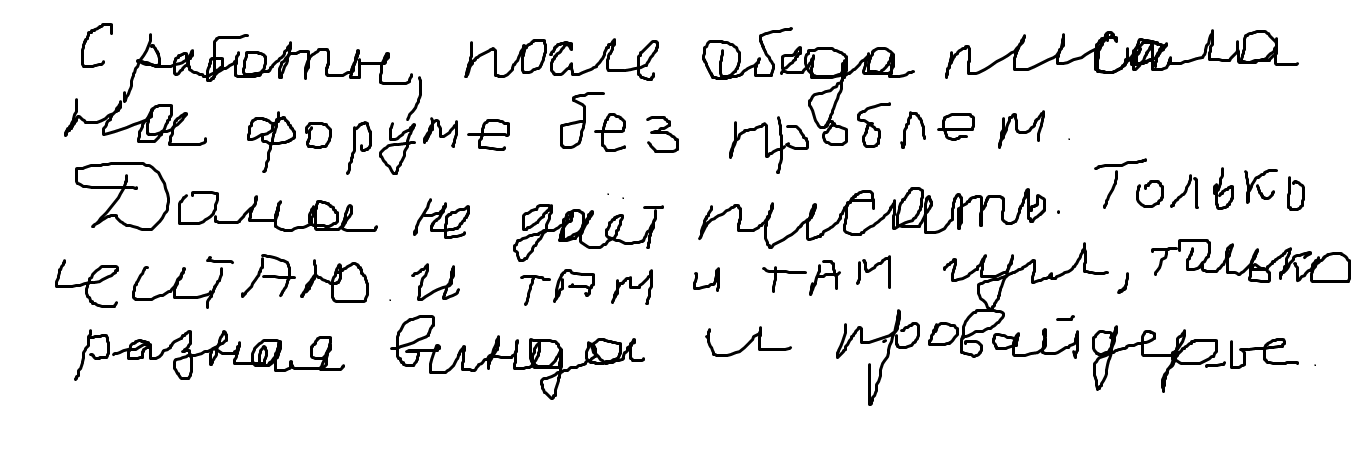 С работы, после обеда писала
на форуме без проблем.
Дома не даёт писать. Только
читаю и там и там гугл, только
разная винда и провайдеры.